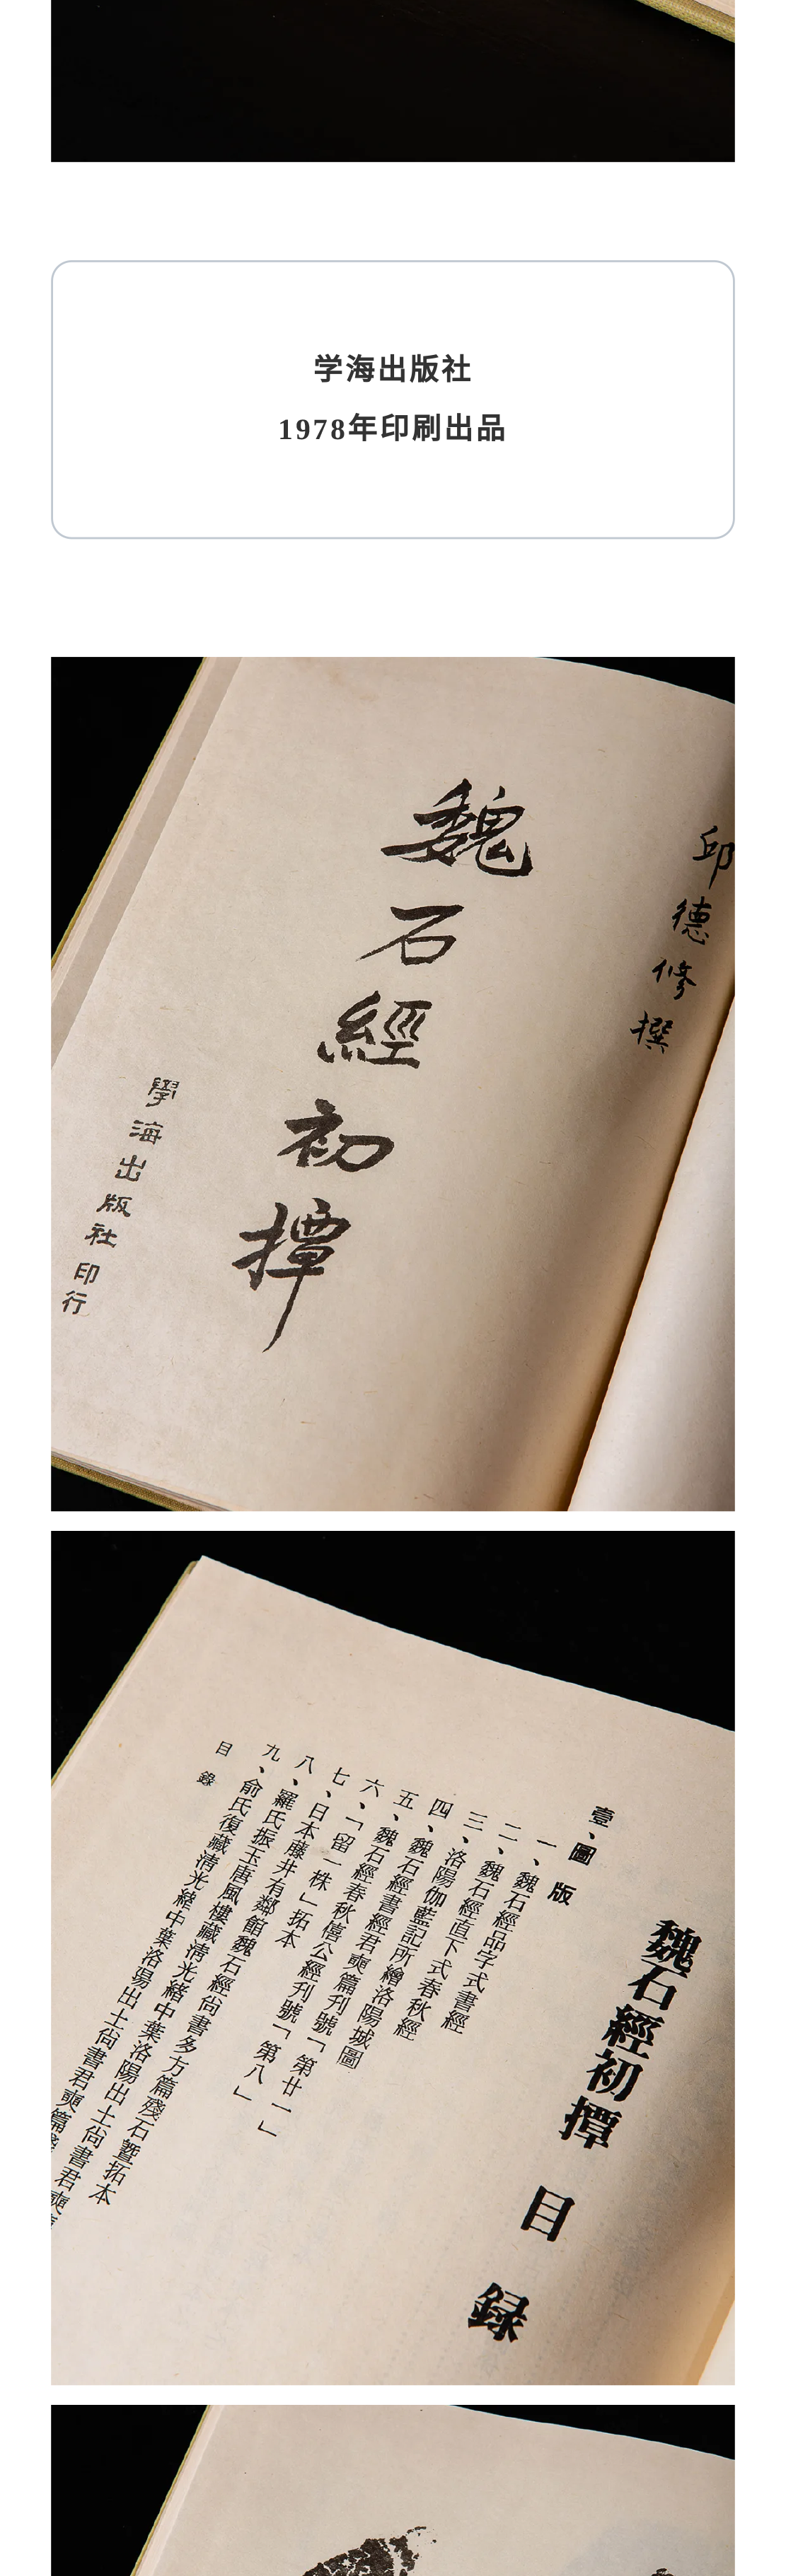 学海出版社
1978年印刷出品
邱德修撰
魏石經初撢
學海出版社印行
魏石經初撢 目錄
壹、圖版
一、魏石經品字式書經
二、魏石經直下式春秋經
三、洛陽伽藍記所繪洛陽城圖
四、魏石經書經君奭篇刊號「第廿一」
五、魏石經春秋僖公經刊號「第八」
六、「留一株」拓本
七、日本藤井有鄰館魏石經尚書多方篇殘石暨拓本
八、羅氏振玉唐風樓藏清光緒中葉洛陽出土尚書君奭
九、俞氏復藏清光緒中葉洛陽出土尚書君奭篇
目錄